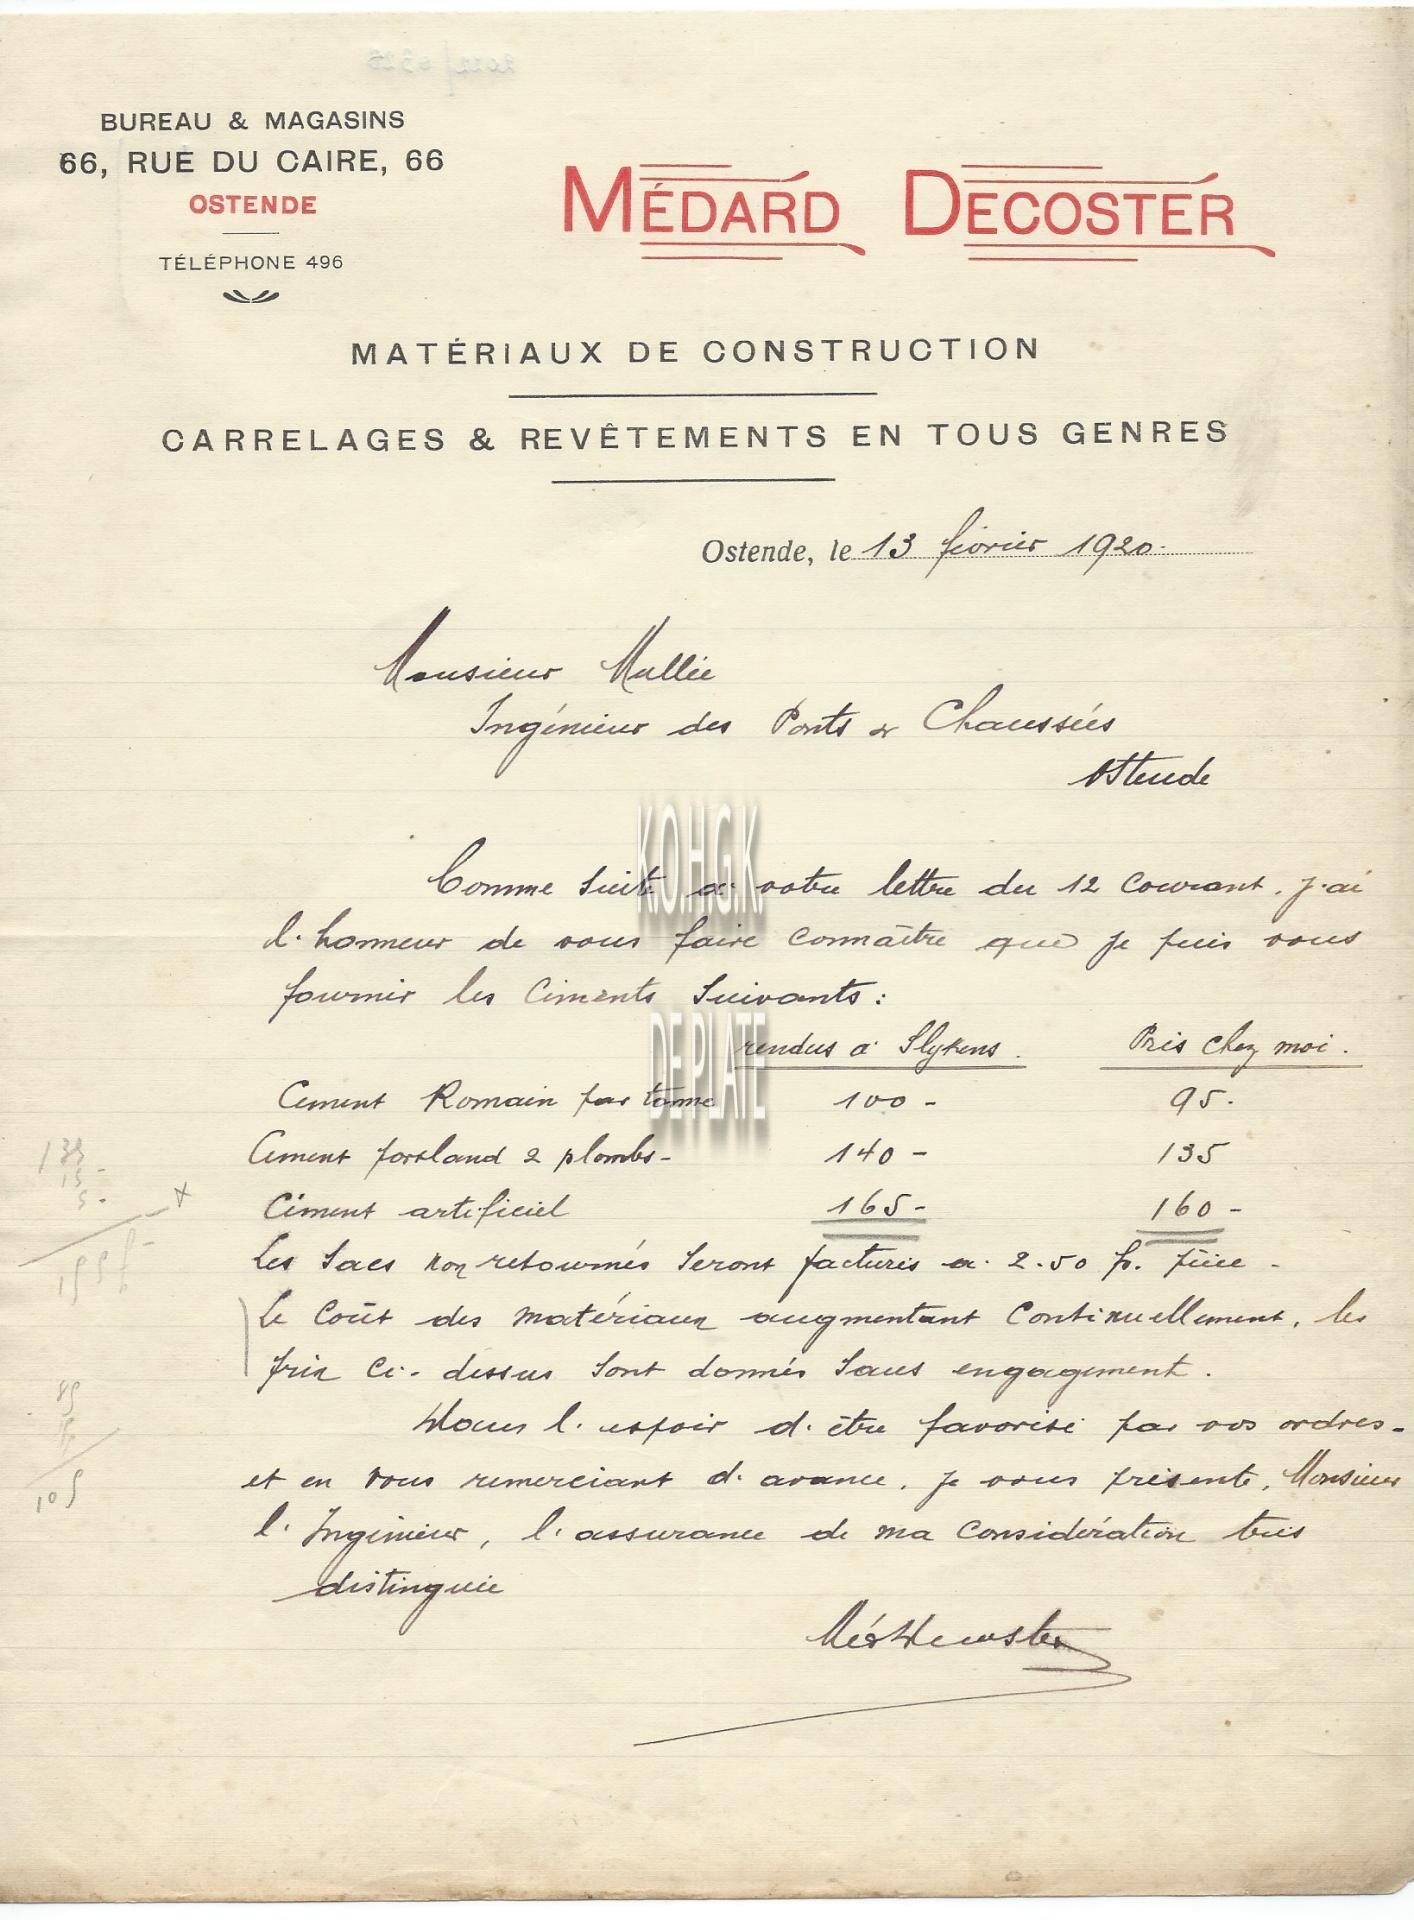 BUREAU & MAGASINS
66, RUE DU CAIRE, 66
OSTENDE
TÉLÉPHONE 496
MÉDARD DECOSTER
MATÉRIAUX DE CONSTRUCTION
CARRELAGES & REVÊTEMENTS EN TOUS GENRES
Ostende, le 13 février 1920.
Monsieur Mullie
Ingénieur des Ponts & Chaussées
Ostende
Comme suite à votre lettre du 12 courant, j'ai
l'honneur de vous faire connaître que je puis vous
fournir les ciments suivants :
rendus à Slykens. Pris chez moi.
Ciment Romain par tonne 100 - 95.
Ciment portland 2 plombs - 140 - 135
Ciment artificiel 165 - 160 -
Les sacs non retournés seront facturés à 2.50 f. pièce -
Le coût des matériaux augmentant continuellement, les
prix ci-dessus sont donnés sans engagement.
Dans l'espoir d'être favorisé par vos ordres -
et en vous remerciant d'avance, je vous présente, Monsieur
l'Ingénieur, l'assurance de ma considération très
distinguée
Méd Decoster
K.O.H.G.K.
DE PLATE
135
15 -
5 -
105